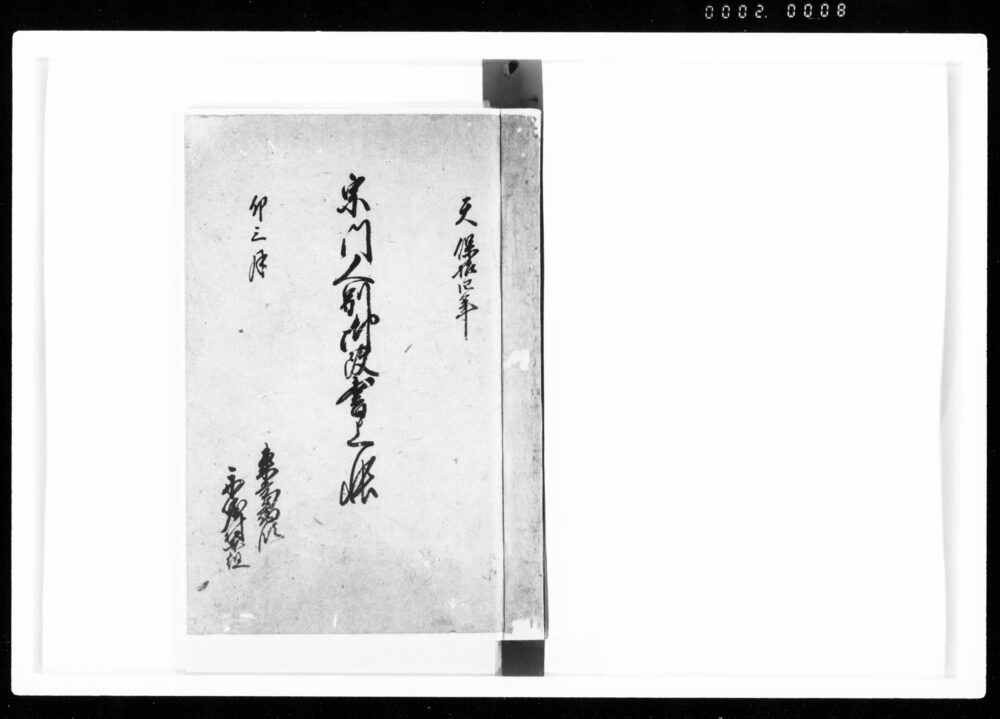 0002 0008
天保拾四年
宗門人別御改書上帳
卯三月